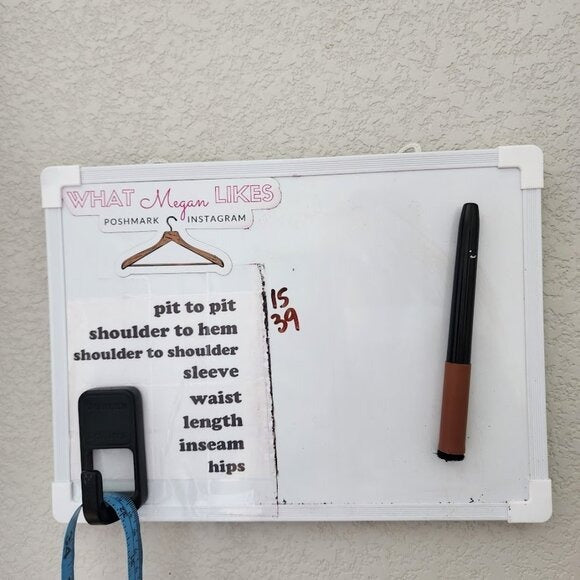 WHAT Megan LIKES
POSHMARK INSTAGRAM
pit to pit 15
shoulder to hem 39
shoulder to shoulder
sleeve
waist
length
inseam
hips